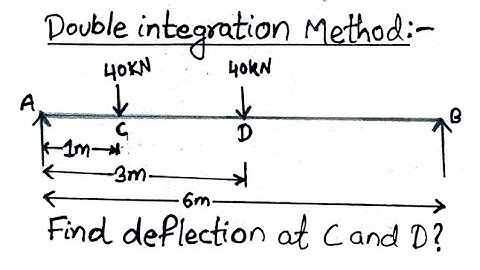 Double integration Method:-
40KN 40KN
A B
C D
1m
3m
6m
Find deflection at C and D?